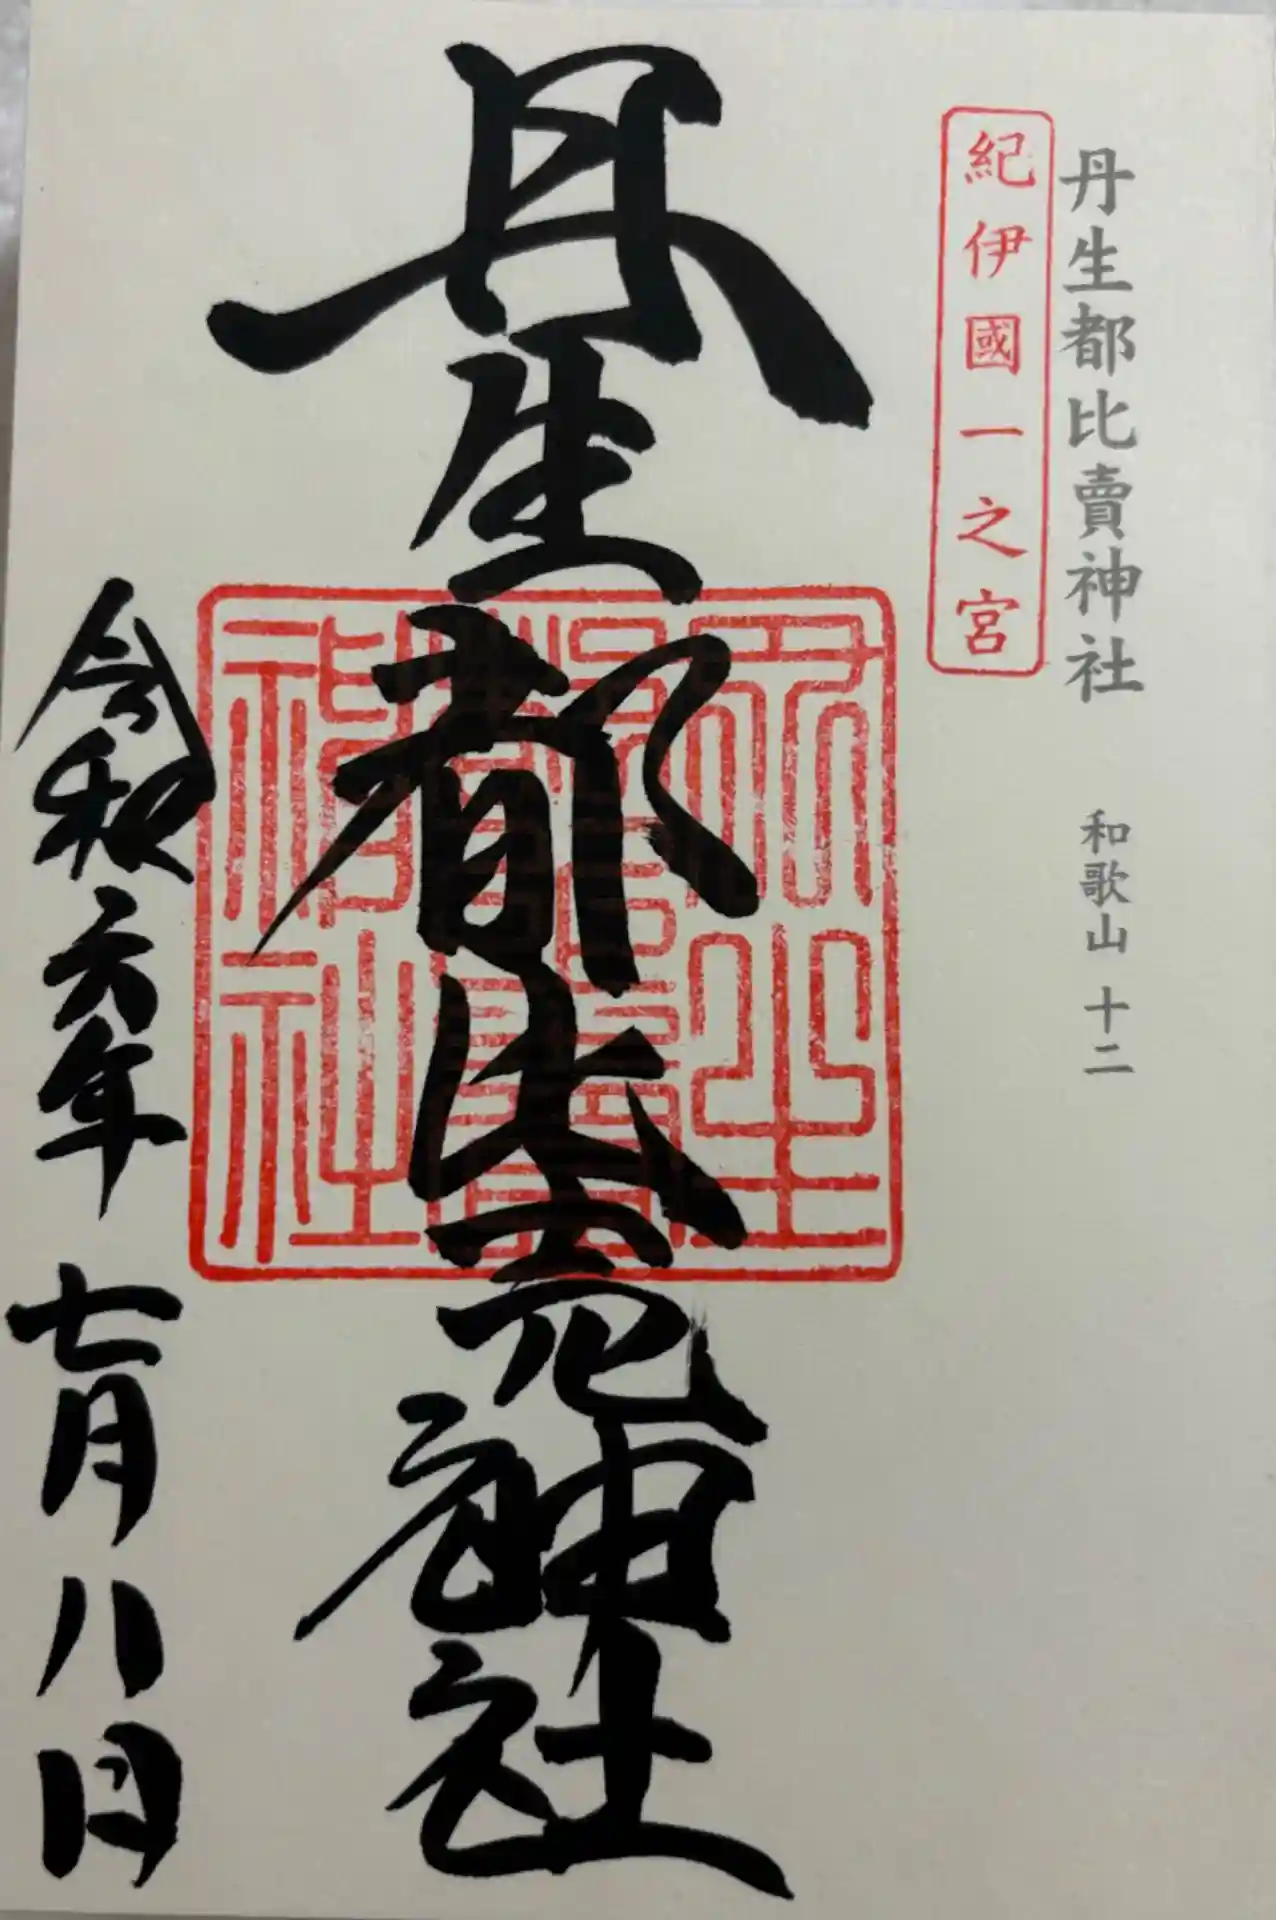 丹生都比賣神社 和歌山 十二
紀伊國一之宮
丹生都比売神社
令和六年 七月八日